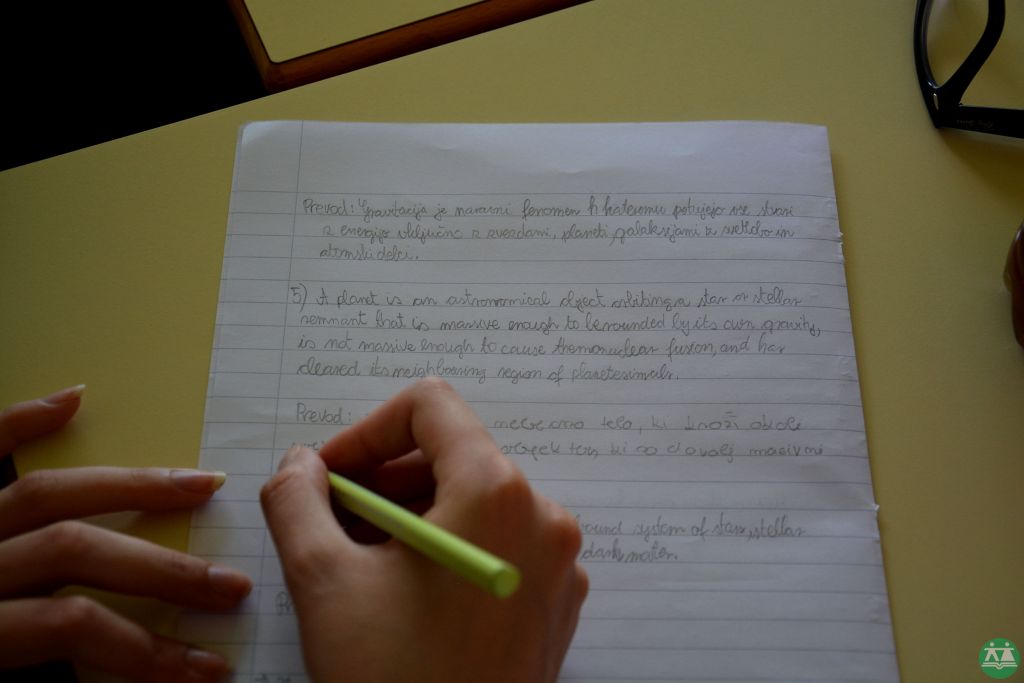 Prevod: Gravitacija je naravni fenomen h kateremu potujejo vse stvari
z energijo vključno z zvezdami, planeti, galaksijami z svetlobo in
atomski delci.
5) A planet is an astronomical object orbiting a star or stellar
remnant that is massive enough to be rounded by its own gravity,
is not massive enough to cause themonuclear fusion, and has
cleared its neighbouring region of planetesimals.
Prevod: nebesno telo, ki kroži okoli
ter ki so dovolj masivni
bound system of stars, stellar
dark mater.